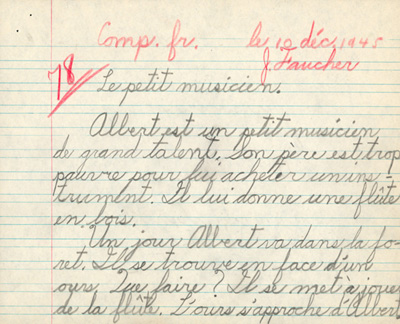 Comp. fr. le 10 déc. 1945
J. Faucher
78
Le petit musicien.
Albert est un petit musicien
de grand talent. Son père est trop
pauvre pour lui acheter un ins-
trument. Il lui donne une flûte
en bois.
Un jour Albert va dans la fo-
ret. Il se trouve en face d'un
ours. Que faire? Il se met à jouer
de la flûte. L'ours s'approche d'Albert